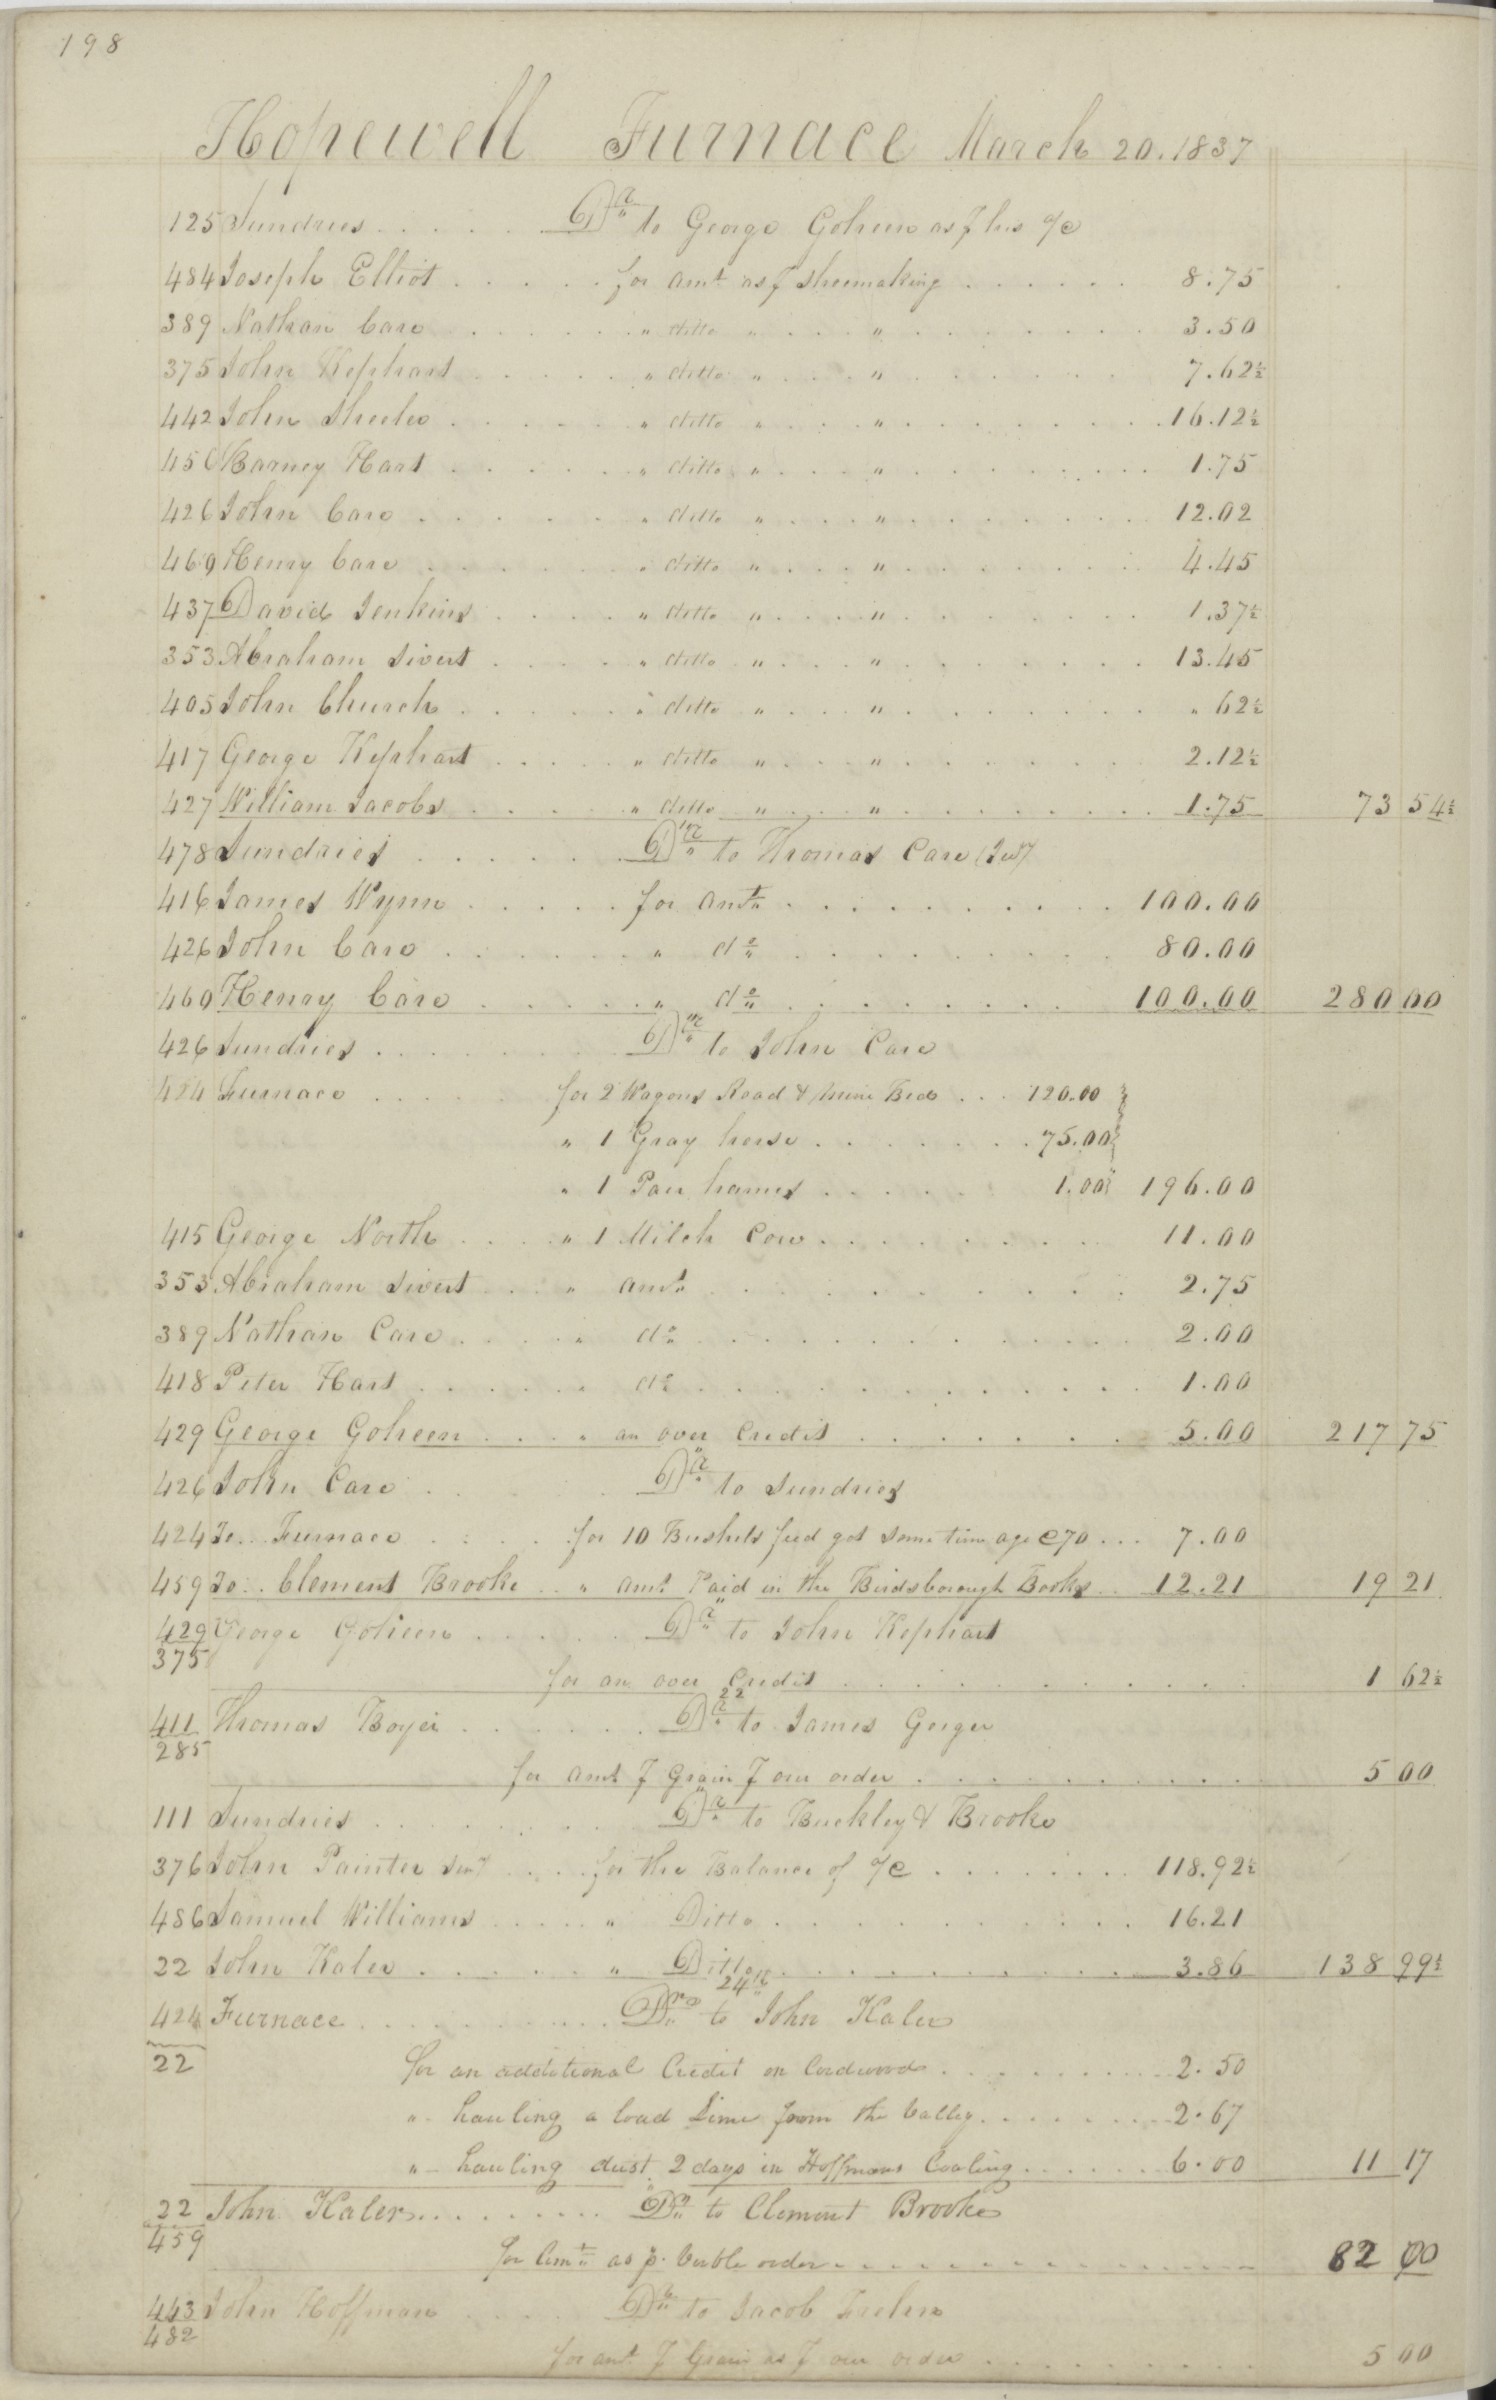 198
Hopewell Furnace March 20. 1837
125 Sundries . . . . . Dr to George Goheen as p his a/c
484 Joseph Elliot . . . . . for amt as p shoemaking . . . . . . 8.75
389 Nathan Care . . . . . . " ditto " . . . " . . . . . . . 3.50
375 John Kephart . . . . . " ditto " . . . " . . . . . . 7.62½
442 John Sheeler . . . . . . " ditto " . . . " . . . . . . . 16.12½
450 Barney Hart . . . . . . " ditto " . . . " . . . . . . . 1.75
426 John Care . . . . . . " ditto " . . . " . . . . . . . 12.02
460 Henry Care . . . . . . " ditto " . . . " . . . . . . . 4.45
437 David Jenkins . . . . " ditto " . . . " . . . . . . . 1.37½
353 Abraham Sivert . . . . " ditto " . . . " . . . . . . . 13.45
405 John Church . . . . . " ditto " . . . " . . . . . . . " 62½
417 George Kephart . . . . . " ditto " . . . " . . . . . . . 2.12½
427 William Jacobs . . . . . " ditto " . . . " . . . . . . . 1.75 73 54½
478 Sundries . . . . . . Dr to Thomas Care (Senr)
416 James Wynn . . . . . for amt . . . . . . . . . 100.00
426 John Care . . . . . . " do . . . . . . . . 80.00
460 Henry Care . . . . . " do . . . . . . . . 100.00 280 00
426 Sundries . . . . . . . Dr to John Care
424 Furnace . . . . . for 2 Wagons Road & Mine Beds . . . 120.00
" 1 Gray horse . . . . . . . 75.00
" 1 Pair hames . . . . . 1.00 196.00
415 George North . . . . " 1 Milch Cow . . . . . . . . 11.00
353 Abraham Sivert . . . " amt . . . . . . . . . . 2.75
389 Nathan Care . . . . " do . . . . . . . . . . 2.00
418 Peter Hart . . . . . . do . . . . . . . . . . 1.00
429 George Goheen . . . . " an over Credit . . . . . . . 5.00 217 75
426 John Care . . . . . Dr to Sundries
424 To . . Furnace . . . . for 10 Bushels feed got some time ago @70 . . . 7.00
459 To . . Clement Brooke . . " amt Paid in the Birdsborough Books . . 12.21 19 21
429 George Goheen . . . . . Dr to John Kephart
375
for an over Credit . . . . . . . . . . 1 62½
22
411 Thomas Boyer . . . . . . . Dr to James Geiger
285
for amt p Grain p our order . . . . . . . . . 5 00
111 Sundries . . . . . . . . Dr to Buckley & Brooke
376 John Painter Senr . . . . for the Balance of a/c . . . . . . . 118.92½
486 Samuel Williams . . . . . " Ditto . . . . . . . . . . 16.21
22 John Kaler . . . . . . " Ditto . . . . . . . . . . 3.86 138 99½
24th
424 Furnace . . . . . . . . . . Dr to John Kaler
22
for an additional Credit on Cordwood . . . . . . . . 2.50
" hauling a load Lime from the Valley . . . . . . . 2.67
" hauling dust 2 days in Hoffmans Coaling . . . . . . 6.00 11 17
22 John Kaler . . . . . . . . . Dr to Clement Brooke
459
for Amt as p. order . . . . . . . . . . . . . . . 82 00
443 John Hoffman . . . . . Dr to Jacob
482
for amt p Grain as p our order . . . . . . . . . 5 00